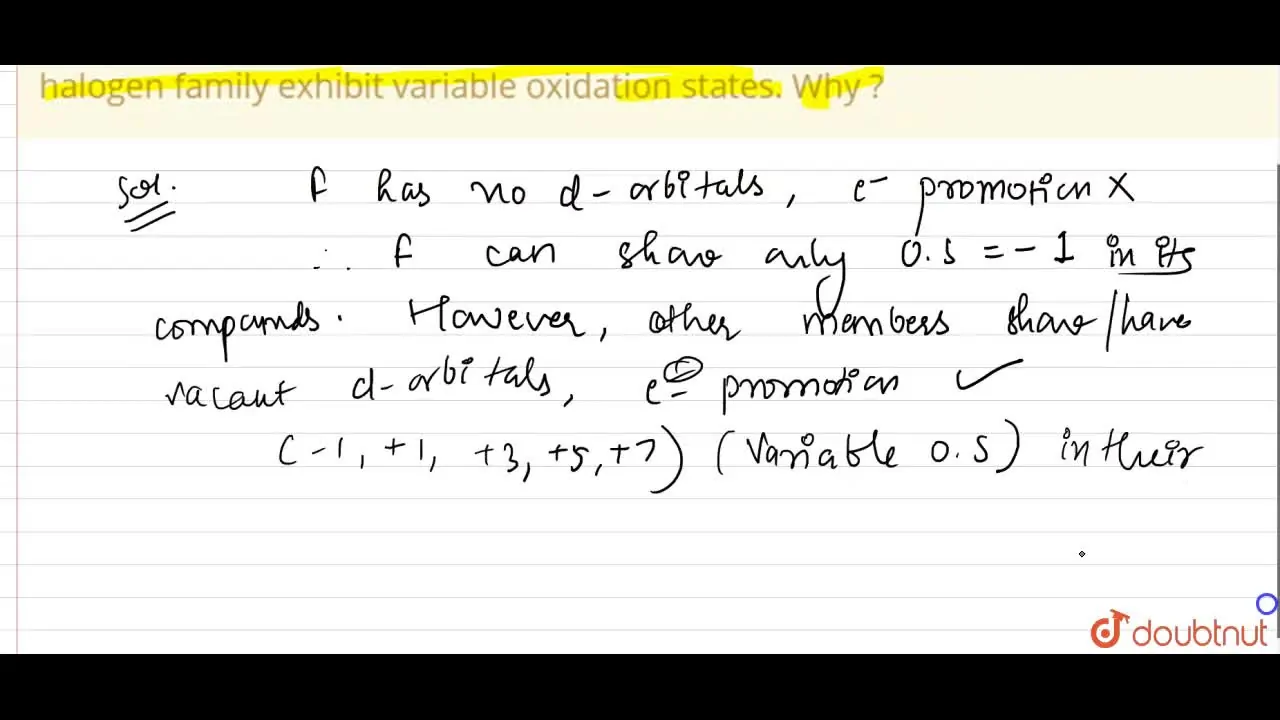 halogen family exhibit variable oxidation states. Why ?
Sol. F has no d-orbitals, e- promotion X
∴ F can show only O.S = -1 in its
compounds. However, other members show/have
vacant d-orbitals, e- promotion ✓
(-1, +1, +3, +5, +7) (Variable O.S) in their
doubtnut